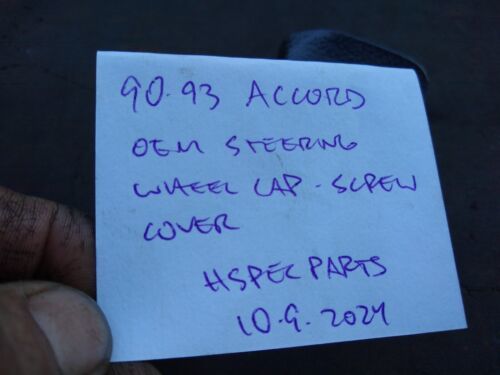 90.93 ACCORD
OEM STEERING
WHEEL CAP - SCREW
COVER
HSPEC PARTS
10.9.2024